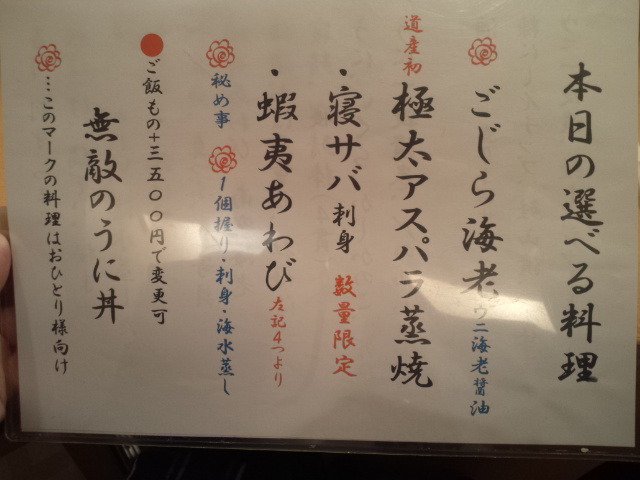 本日の選べる料理
ごじら海老 ウニ海老醤油
道産初 極太アスパラ蒸焼
・寝サバ刺身 数量限定
・蝦夷あわび 左記4つより
秘め事 1個握り・刺身・海水蒸し
●ご飯もの+三五〇〇円で変更可
無敵のうに丼
…このマークの料理はおひとり様向け